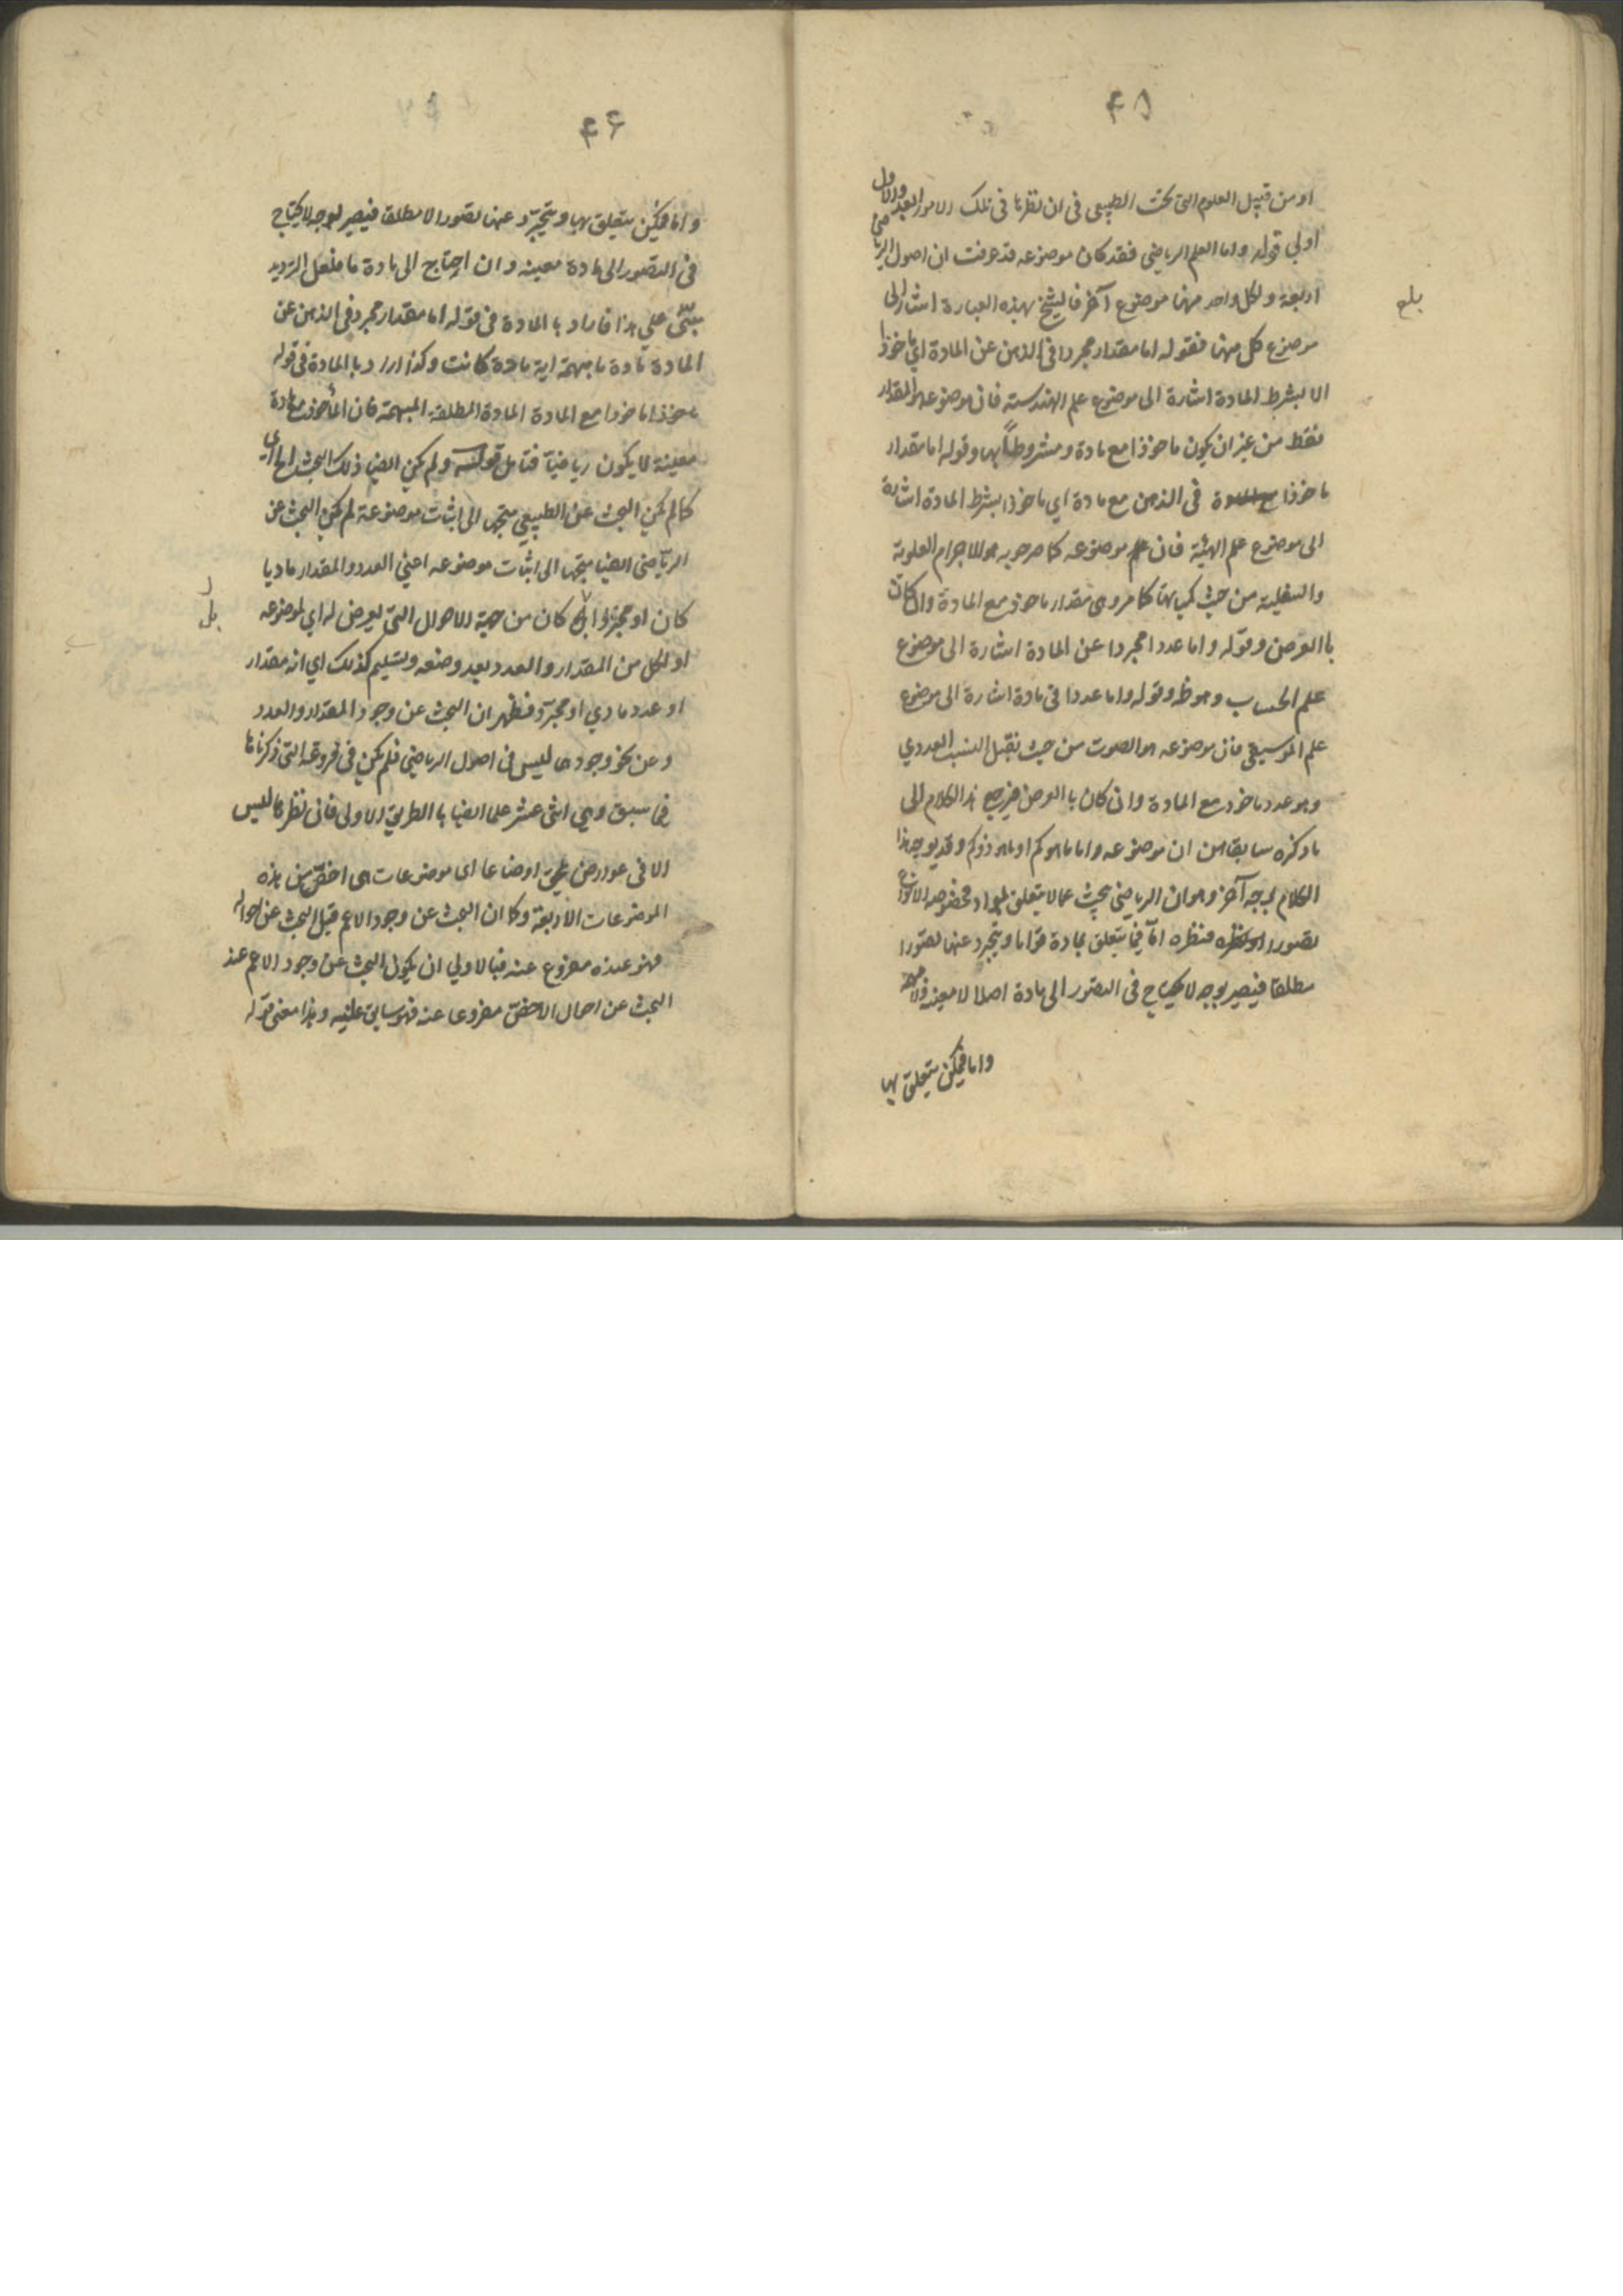 ٤٥
او من قبيل العلوم التى تحت الطبيعى فى ان نظرها فى تلك الامور العدد والاول
اولي قوله واما العلم الرياضى فقد كان موضوعه قد عرفت ان اصول الرياضى
اربعة ولكل واحد منها موضوع آخر فالشيخ بهذه العبارة اشار الى
موضوع كل منها فقوله اما مقدار مجردا فى الذهن عن المادة اى ماخوذا
لا بشرط المادة اشارة الى موضوع علم الهندسة فان موضوعه هو المقدار
فقط من غير ان يكون ماخوذا مع مادة ومشروطاً بها وقوله اما مقدار
ماخوذا فى الذهن مع مادة اي ماخوذا بشرط المادة اشارة
الى موضوع علم الهيئة فان علم موضوعه كما صرحوا به هو الاجرام العلوية
والسفلية من حيث كمياتها كما مر وهى مقدار ماخوذ مع المادة وان كان
با العرض وقوله واما عددا مجردا عن المادة اشارة الى موضوع
علم الحساب وهو ظ وقوله واما عددا فى مادة اشارة الى موضوع
علم الموسيقى فان موضوعه هو الصوت من حيث يقبل النسب العددي
وهو عدد ماخوذ مع المادة وان كان با العرض فيرجع هذا الكلام الى
ما ذكره سابقا من ان موضوعه واما ما هو كم او ما هو ذو كم وقد يوجه هذا
الكلام بوجه آخر وهو ان الرياضى يبحث عما لا يتعلق بمواد مخصوصة الانواع
تصورا فنظره اما فيما يتعلق بمادة قواما ويتجرد عنها تصورا
مطلقا فيصير بوجه لا يحتاج فى التصور الى مادة اصلا لا معينة ولا مبهمة
واما فيمكن يتعلق بها
بلغ
٤٦
واما فيمكن يتعلق بها ويتجرّد عنها تصورا لا مطلقا فيصير بوجه لا يحتاج
فى التصور الى مادة معينه وان احتاج الى مادة ما فلعل الترديد
مبنّى على هذا فاراد با المادة فى قوله اما مقدار مجرد فى الذهن عن
المادة مادة ما مبهمة اية مادة كانت وكذا اراد با المادة فى قوله
ماخوذا ماخوذا مع المادة المادة المطلقة المبهمة فان المأخوذ مع مادة
معينة لا يكون رياضيا فتامل قوله ولم يكن ايضا ذلك البحث الخ اي
كما لم يكن البحث عن الطبيعي متجها الى اثبات موضوعه لم يكن البحث عن
الرياضى ايضا متجها الى اثبات موضوعه اعني العدد والمقدار ماديا
كان او مجردا بل كان من جهة الاحوال التى يعرض له اي لموضوعه
او لكل من المقدار والعدد بعد وضعه وتسليمه كذلك اي انه مقدار
او عدد مادي او مجرد فظهر ان البحث عن وجود المقدار والعدد
وعن نحو وجودها ليس فى اصول الرياضى فلم يكن فى فروعه التى ذكرناها
فيما سبق وهي اثنى عشر علما ايضا با الطريق الاولى فان نظرها ليس
الا فى عوارض يلحق اوضاعا اى موضوعات هى اخصّ من هذه
الموضوعات الاربعة وكما ان البحث عن وجود الاعم قبل البحث عن احواله
فهو عنده مفروغ عنه فبالاولى ان يكون البحث عن وجود الاعم عند
البحث عن احوال الاخصّ مفروغا عنه فهو سابق عليه وهذا معنى قوله